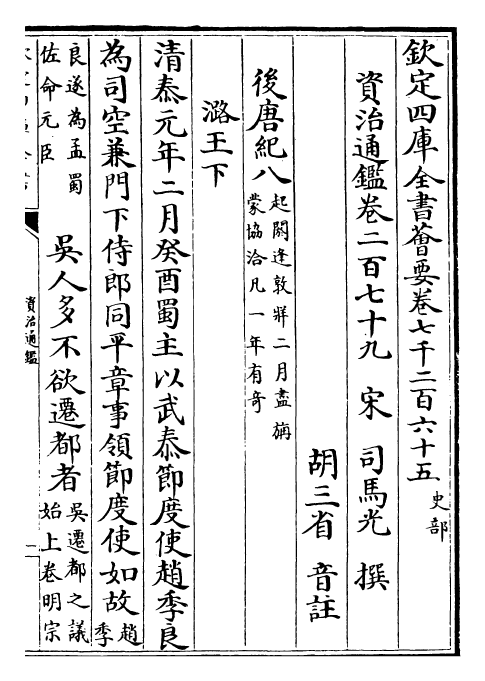 欽定四庫全書薈要卷七千二百六十五 史部
資治通鑑卷二百七十九 宋 司馬光 撰
胡三省 音註
後唐紀八 起閼逢敦牂二月盡旃
蒙協洽凡一年有奇
潞王下
清泰元年二月癸酉蜀主以武泰節度使趙季良
為司空兼門下侍郎同平章事領節度使如故 趙季
良遂為孟蜀
佐命元臣 吳人多不欲遷都者 吳遷都之議
始上卷明宗
資治通鑑
一